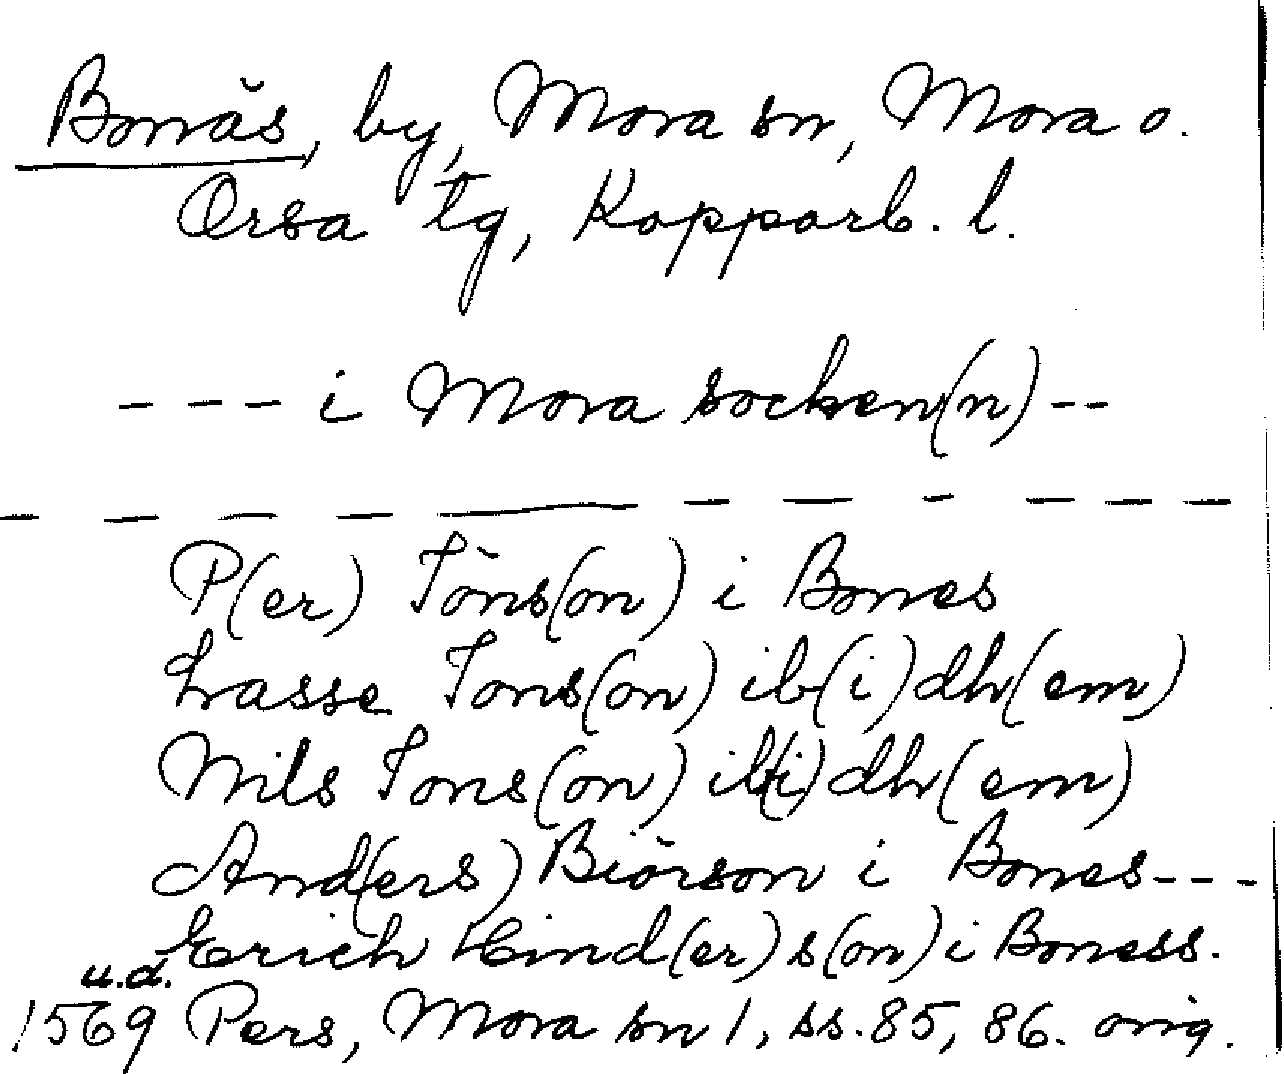 Bonäs, by, Mora sn, Mora o.
Orsa tg, Kopparb. l.
--- i Mora socken(n) --
P(er) Jöns(on) i Bones
Lasse Jons(on) ib(i)dh(em)
Nils Jons(on) ib(i)dh(em)
And(ers) Biörson i Bones ---
Erich Hind(er)s(on) i Boness.
u.d.
1569 Pers, Mora sn 1, ss. 85, 86. orig.